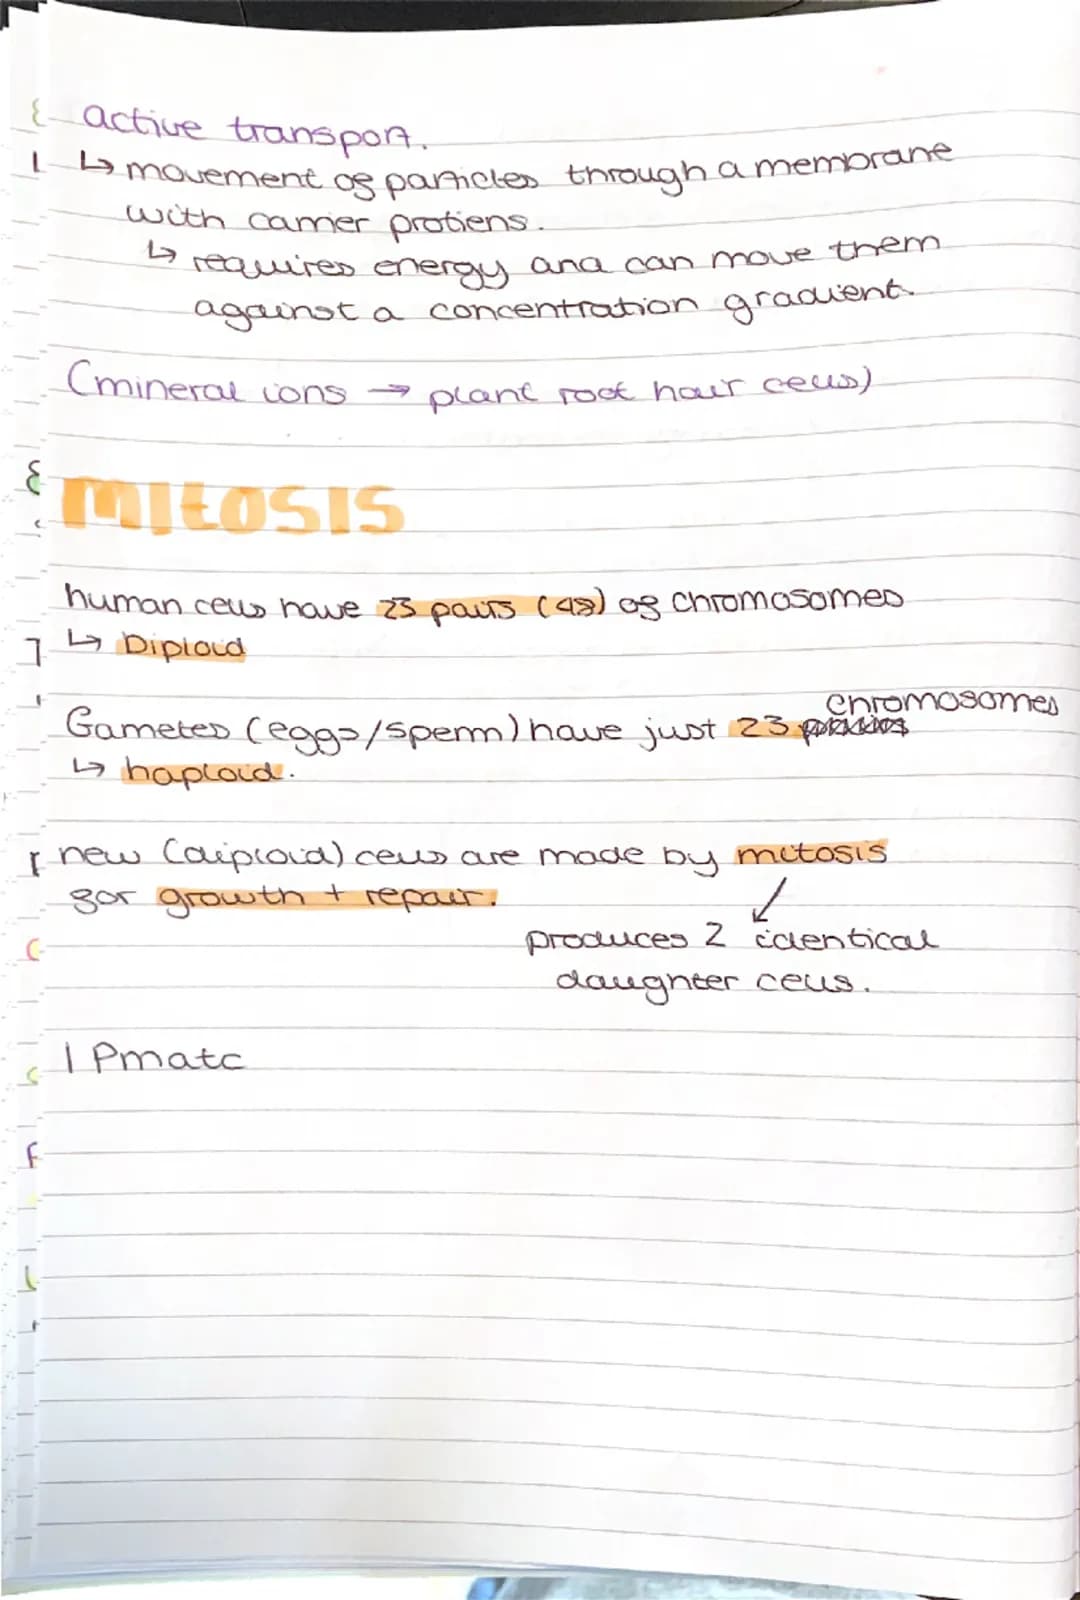 active transport.
↳ movement of particles through a membrane
with carrier protiens.
↳ requires energy and can move them
against a concentration gradient.
(mineral ions → plant root hair cells)
MItOSIS
human cells have 23 pairs (48) of chromosomes
↳ Diploid
chromosomes
Gametes (eggs/sperm) have just 23
↳ haploid.
new (diploid) cells are made by mitosis
for growth + repair.
produces 2 identical
daughter cells.
I Pmatc